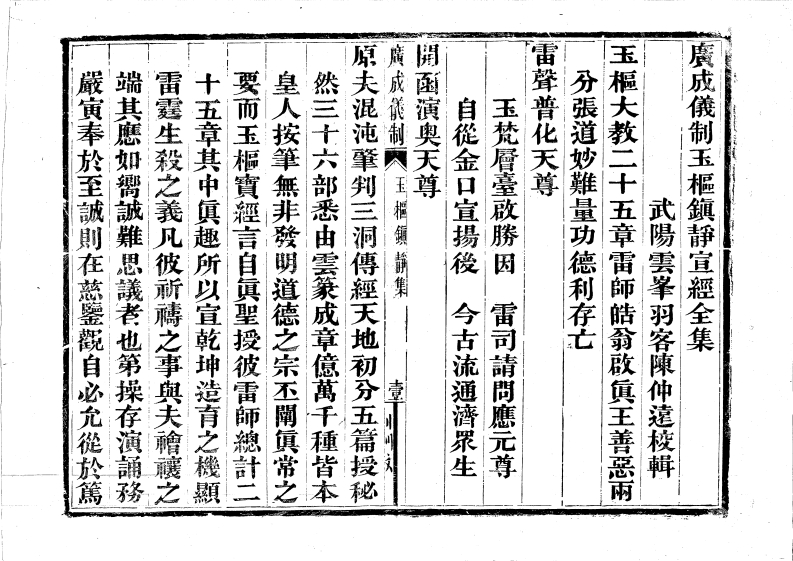 廣成儀制玉樞鎮靜宣經全集
武陽雲峯羽客陳仲遠校輯
玉樞大教二十五章雷師皓翁啟眞王善惡兩
分張道妙難量功德利存亡
雷聲普化天尊
玉梵層臺啟勝因　雷司請問應元尊
自從金口宣揚後　今古流通濟眾生
開函演奧天尊
廣成儀制　玉樞鎮靜集　壹
原夫混沌肇判三洞傳經天地初分五篇授秘
然三十六部悉由雲篆成章億萬千種皆本
皇人按筆無非發明道德之宗丕闡眞常之
要而玉樞寶經言自眞聖授彼雷師總計二
十五章其中眞趣所以宣乾坤造育之機顯
雷霆生殺之義凡彼祈禱之事與夫禬禳之
端其應如嚮誠難思議者也第操存演誦務
嚴寅奉於至誠則在慈鑒觀自必允從於篤